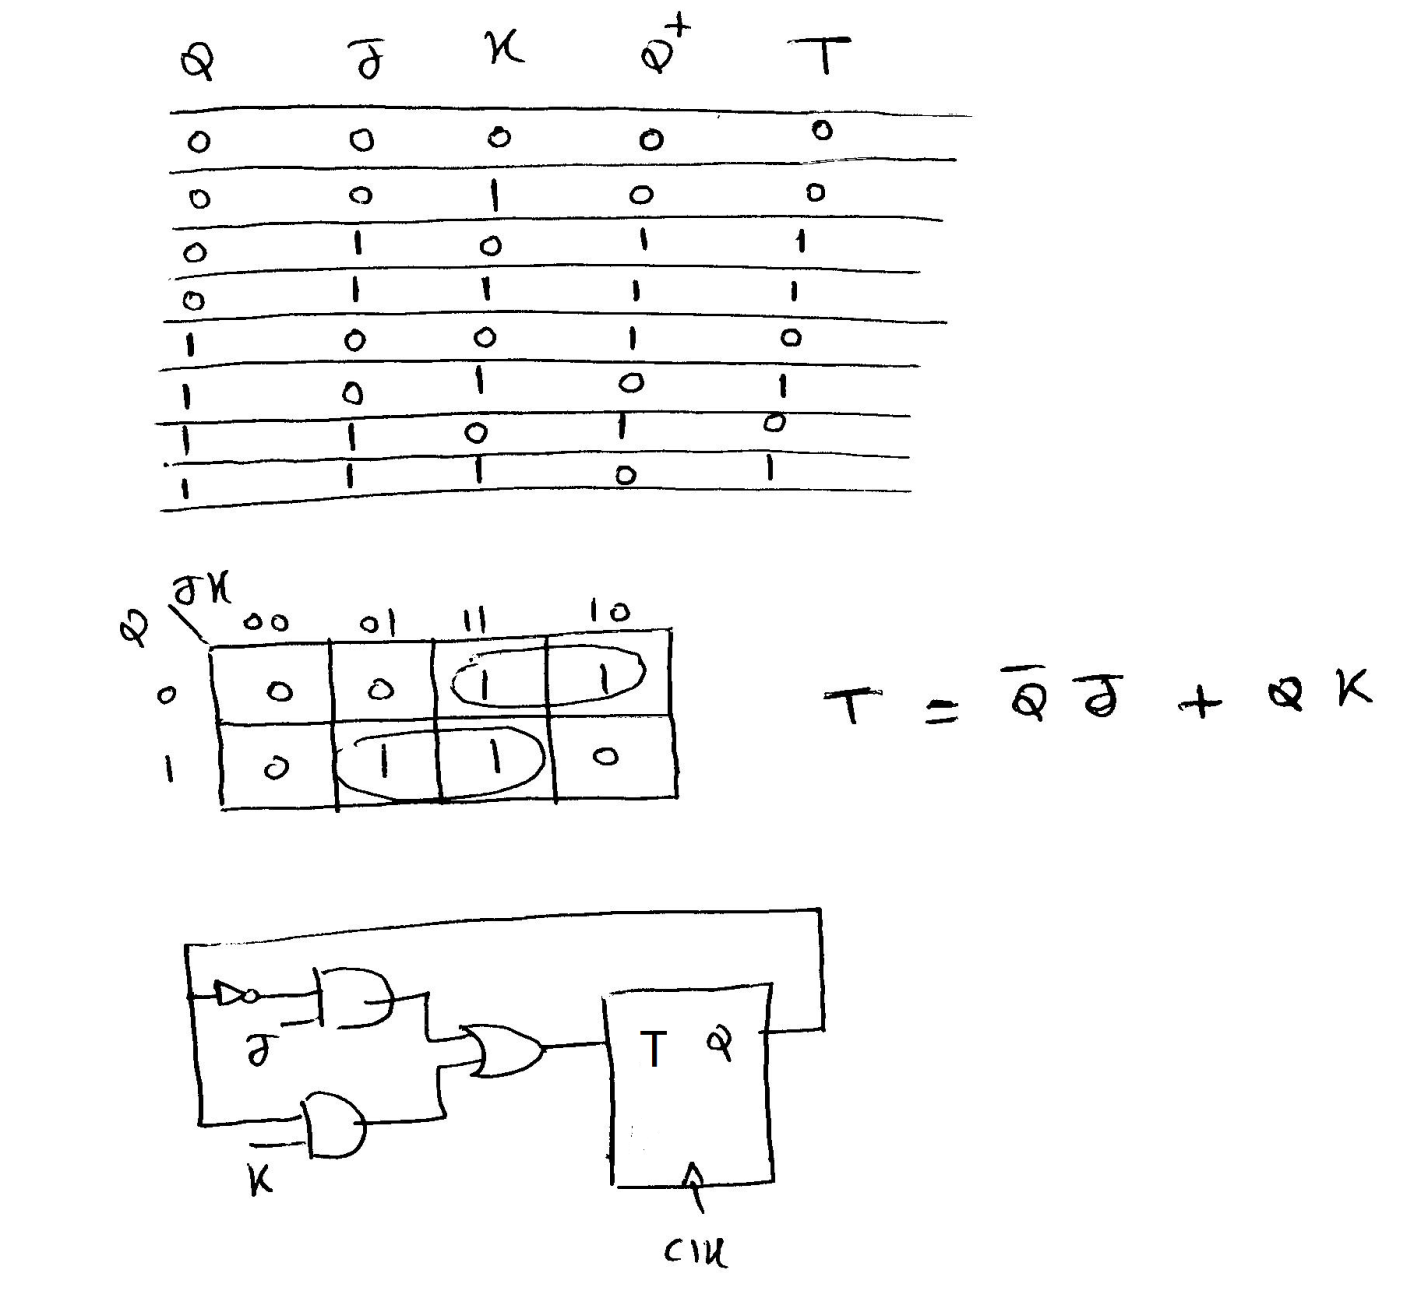 Q J K Q+ T
0 0 0 0 0
0 0 1 0 0
0 1 0 1 1
0 1 1 1 1
1 0 0 1 0
1 0 1 0 1
1 1 0 1 0
1 1 1 0 1
JK
Q 00 01 11 10
0 0 0 1 1
T = Q̅ J + Q K
1 0 1 1 0
J
T Q
K
Clk